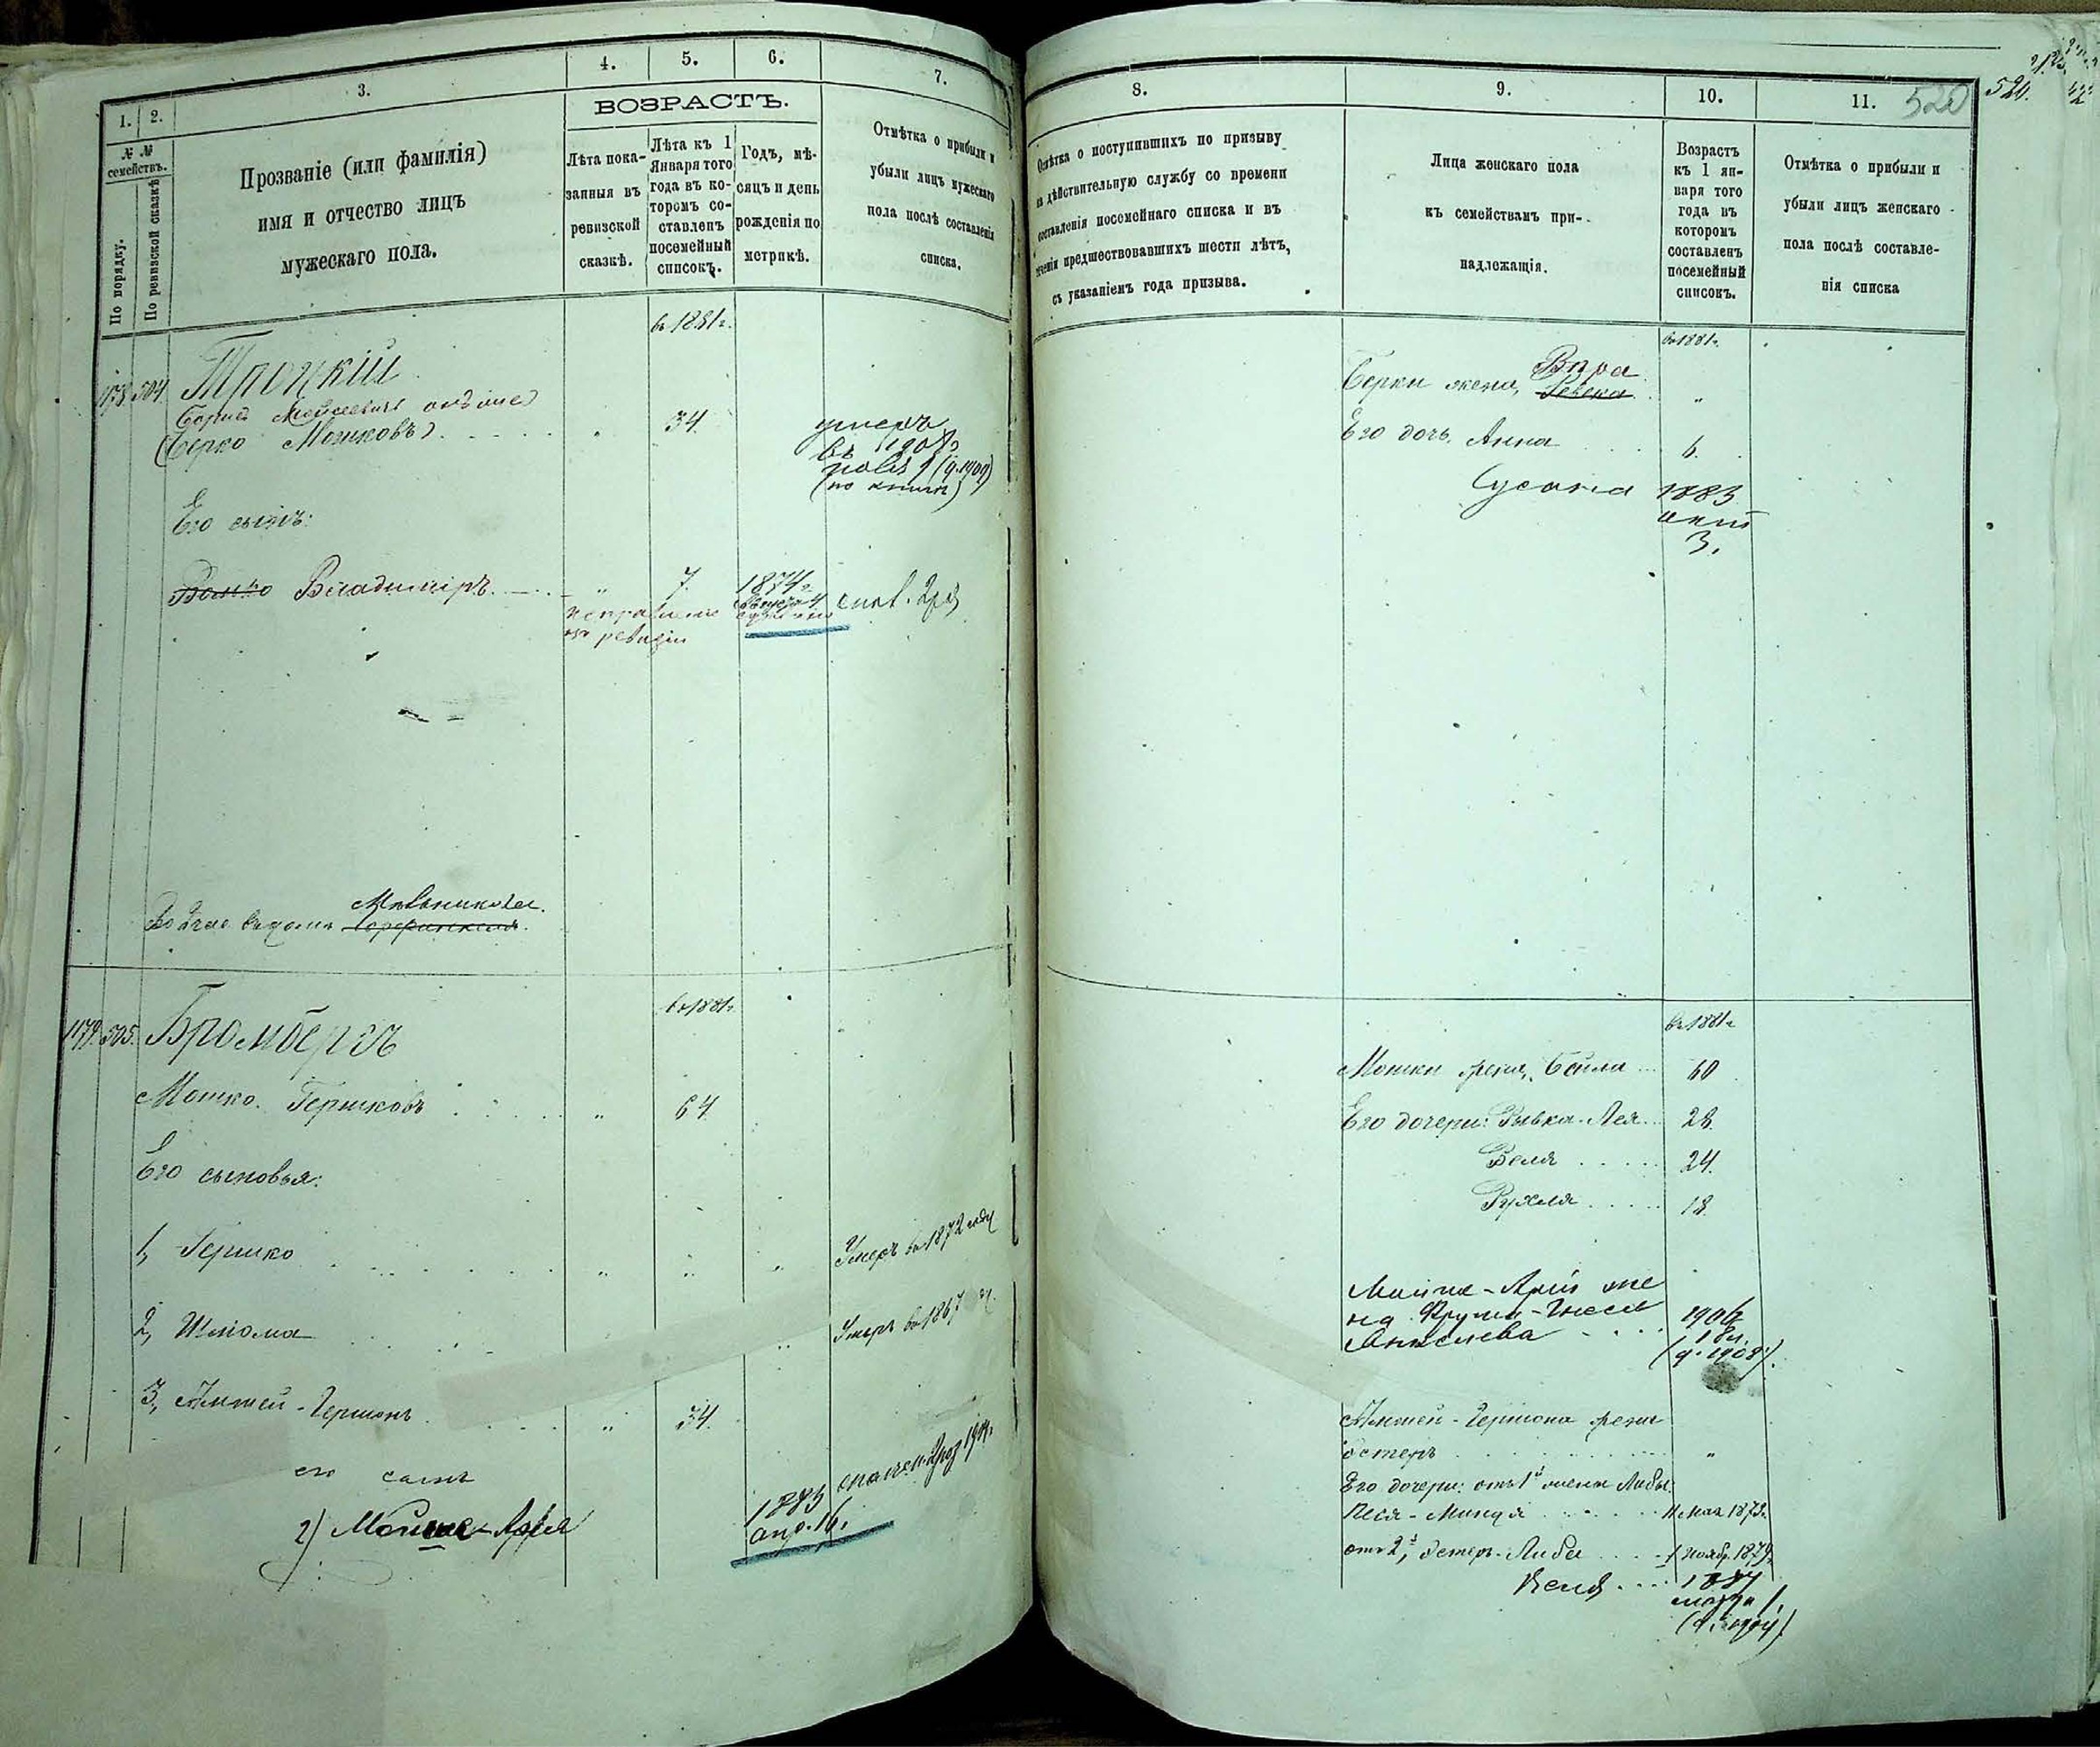 3.
4.
5.
6.
7.
1.
2.
ВОЗРАСТЪ.
№ №
семействъ.
По порядку.
По ревизской сказкѣ
Прозваніе (или фамилія)
имя и отчество лицъ
мужескаго пола.
Лѣта пока-
занныя въ
ревизской
сказкѣ.
Лѣта къ 1
Января того
года въ ко-
торомъ со-
ставленъ
посемейный
списокъ.
Годъ, мѣ-
сяцъ и день
рожденія по
метрикѣ.
Отмѣтка о прибыли и
убыли лицъ мужескаго
пола послѣ составленія
списка.
въ 1881 г.
1178
504
Троцкій
Борисъ Моисеевичъ онъ же
(Берко Мошковъ)
34.
умеръ
въ 1907 г.
(по книгѣ)
Его сынъ:
Волько Владиміръ
7.
1874 г.
исправлено
по ревизіи
Мельникова.
въ 1881 г.
1179.
505.
Бромбергъ
Мошко Гершковъ
64
Его сыновья:
1, Гершко
Умеръ въ 1872 году
2, Шлёма
Умеръ въ 1867
3, Гершонъ
34.
его сынъ
2) Мойше-Арія
1883
апр. 16.
8.
9.
10.
11.
520
520.
Отмѣтка о поступившихъ по призыву
на дѣйствительную службу со времени
составленія посемейнаго списка и въ
теченіи предшествовавшихъ шести лѣтъ,
съ указаніемъ года призыва.
Лица женскаго пола
къ семействамъ при-
надлежащія.
Возрастъ
къ 1 ян-
варя того
года въ
которомъ
составленъ
посемейный
списокъ.
Отмѣтка о прибыли и
убыли лицъ женскаго
пола послѣ составле-
нія списка
въ 1881 г.
Вѣра
Берки жена, Ревека
Его дочь Анна
6.
Сусана
1883
3.
въ 1881 г.
Мошки жена, Бейла
60
Его дочери: Рывка-Лея
28.
Веля
24.
Рухля
18.
Мойше-Арій же
на Фрума
1906
18 л.
(д. 1908).
Гершона жена
Эстеръ
Его дочери: отъ 1й жены Либы:
Песя-Миндя
11 Мая 1873 г.
отъ 2й, Эстеръ-Либы
1 Нояб. 1879 г.
1887
марта 1.